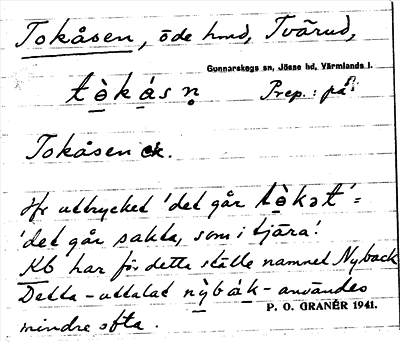 Tokåsen, öde hmd, Tvärud,
Gunnarskogs sn, Jösse hd, Värmlands l.
tὸ̱ká̱sn̥ Prep.: på
Tokåsen ek.
Jfr uttrycket 'det går tὸ̱kət' =
'det går sakta, som i tjära'.
Kb har för detta ställe namnet Nyback
Detta – uttalat nỳbák – användes
P. O. GRANÉR 1941.
mindre ofta.